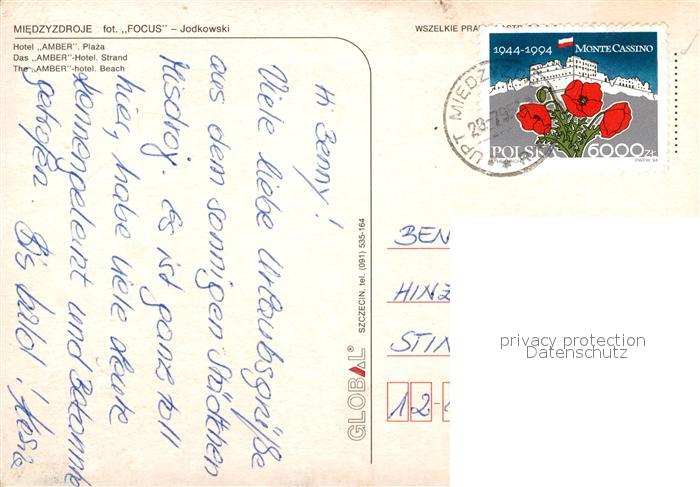 MIĘDZYZDROJE fot. „FOCUS” – Jodkowski
Hotel „AMBER”. Plaża
Das „AMBER”-Hotel. Strand
The „AMBER”-hotel. Beach
WSZELKIE
1944-1994 MONTE CASSINO
POLSKA 6000zł
PWPW 94
UPT MIĘDZ
Hi Benny!
Viele liebe Urlaubsgrüße
aus dem sonnigen Städtchen
Misdroj. Es ist ganz toll
hier, habe viele Leute
kennengelernt und Bekannte
getroffen. Bis bald!
GLOBAL® SZCZECIN, tel. (091) 535-164
BEN
HINZ
STIN
12-
privacy protection
Datenschutz